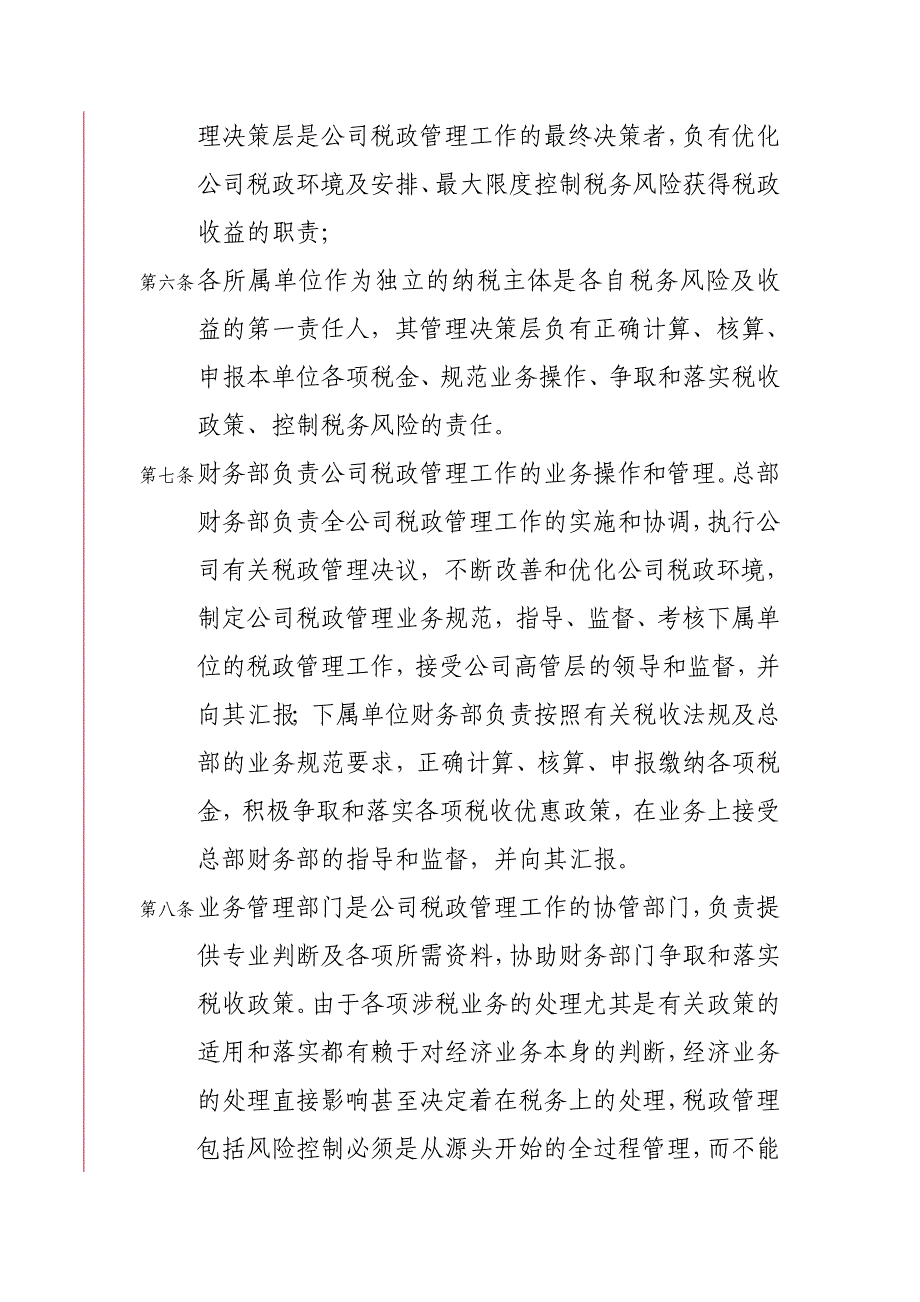 理决策层是公司税政管理工作的最终决策者，负有优化
公司税政环境及安排、最大限度控制税务风险获得税政
收益的职责；
第六条 各所属单位作为独立的纳税主体是各自税务风险及收
益的第一责任人，其管理决策层负有正确计算、核算、
申报本单位各项税金、规范业务操作、争取和落实税收
政策、控制税务风险的责任。
第七条 财务部负责公司税政管理工作的业务操作和管理。总部
财务部负责全公司税政管理工作的实施和协调，执行公
司有关税政管理决议，不断改善和优化公司税政环境，
制定公司税政管理业务规范，指导、监督、考核下属单
位的税政管理工作，接受公司高管层的领导和监督，并
向其汇报；下属单位财务部负责按照有关税收法规及总
部的业务规范要求，正确计算、核算、申报缴纳各项税
金，积极争取和落实各项税收优惠政策，在业务上接受
总部财务部的指导和监督，并向其汇报。
第八条 业务管理部门是公司税政管理工作的协管部门，负责提
供专业判断及各项所需资料，协助财务部门争取和落实
税收政策。由于各项涉税业务的处理尤其是有关政策的
适用和落实都有赖于对经济业务本身的判断，经济业务
的处理直接影响甚至决定着在税务上的处理，税政管理
包括风险控制必须是从源头开始的全过程管理，而不能